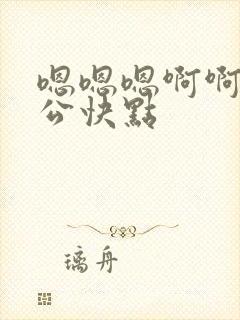 嗯嗯嗯啊啊
公快點
璃舟